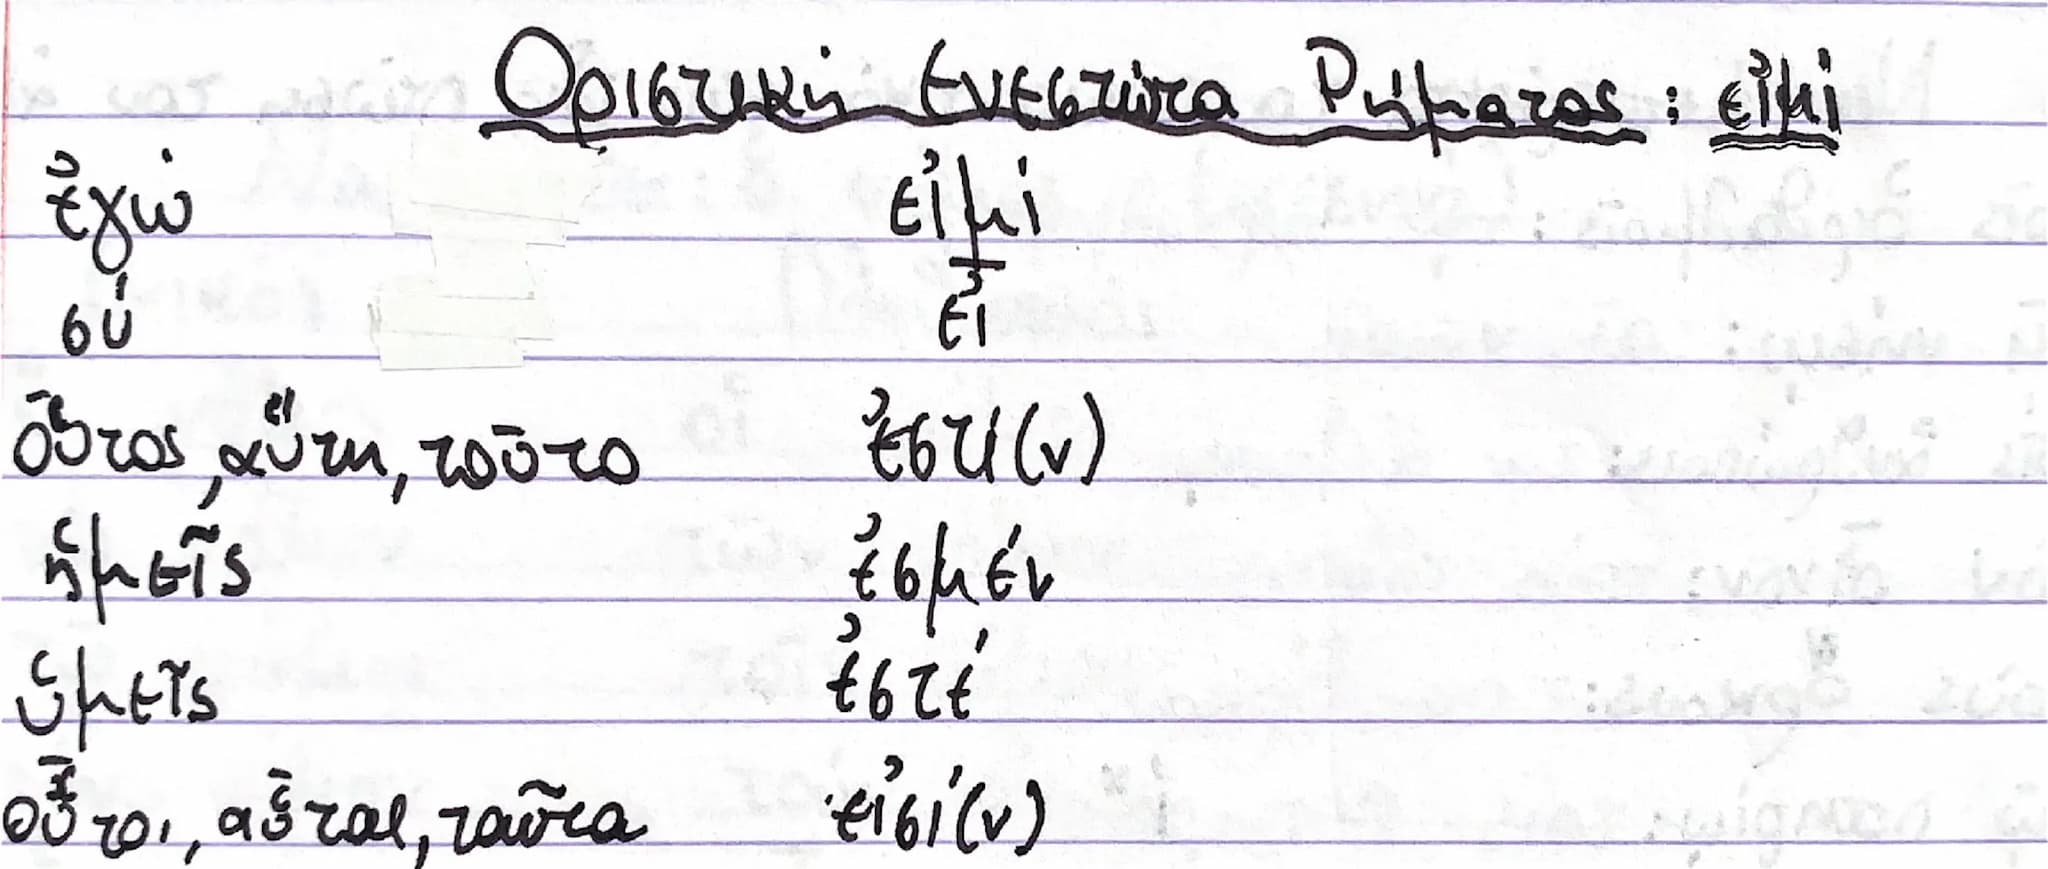 Οριστική Ενεστώτα Ρήματος: εἰμί
ἐγώ εἰμί
σύ εἶ
οὗτος, αὕτη, τοῦτο ἐστί(ν)
ἡμεῖς ἐσμέν
ὑμεῖς ἐστέ
οὗτοι, αὗται, ταῦτα εἰσί(ν)